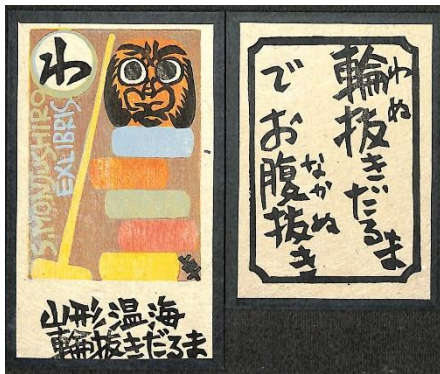 わ
S.MONUSHIRO
EXLIBRIS
山形温海
輪抜きだるま
輪抜きだるま
わぬ
でお腹抜き
なかぬ